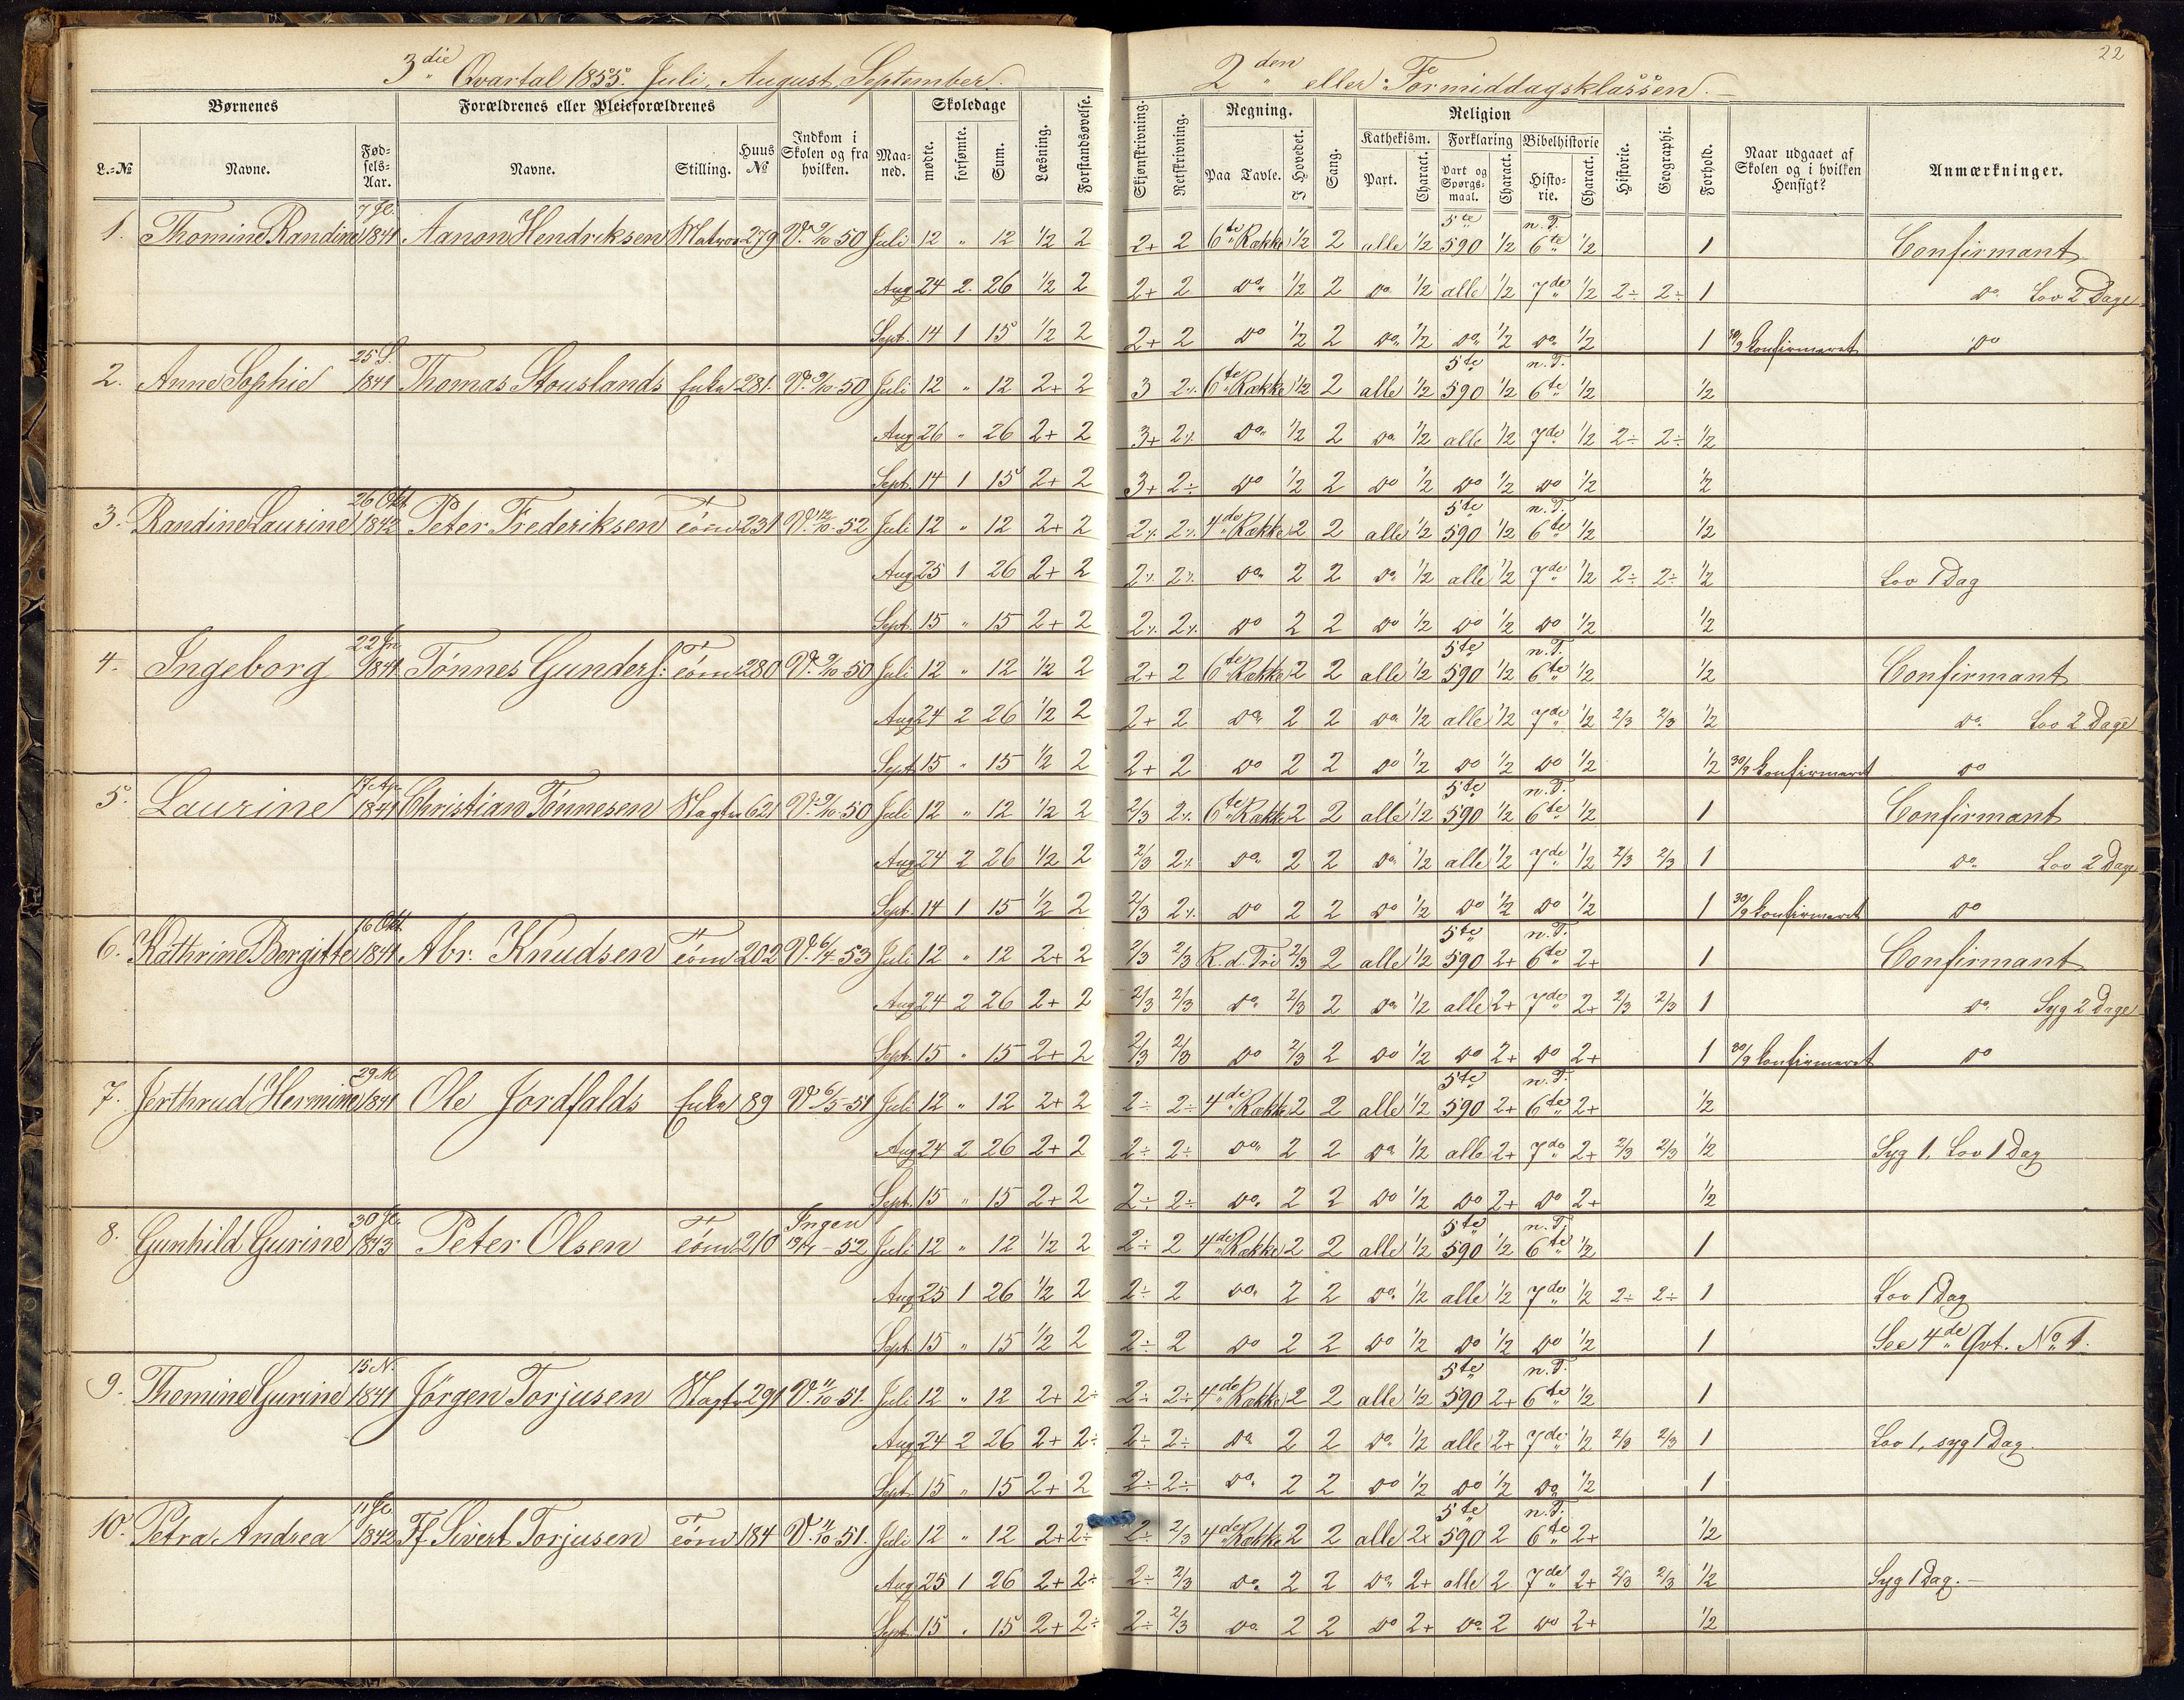 22
3die Qvartal 1855. Juli, August, September.
2den eller Formiddagsklassen.
Børnenes Forældrenes eller Pleieforældrenes Skoledage Regning. Religion
L.-№ Navne. Fødsels-Aar. Navne. Stilling. Huus № Indkom i Skolen og fra hvilken. Maaned. mødte. forsømte. Sum. Læsning. Forstandsøvelse. Skjønskrivning. Retskrivning. Paa Tavle. I Hovedet. Sang. Kathekism. Part. Charact. Forklaring Part og Spørgsmaal. Charact. Bibelhistorie Historie. Charact. Historie. Geographi. Forhold. Naar udgaaet af Skolen og i hvilken Hensigt? Anmærkninger.
1. Thomine Randine 7 Jl. 1841 Aanon Hendriksen Matros 279 V. 9/10 50 Juli 12 " 12 1/2 2 2+ 2 6te Række 1/2 2 alle 1/2 5te 590 1/2 n. T. 6te 1/2 1 Confirmant
Aug 24 2 26 1/2 2 2+ 2 do 1/2 2 do 1/2 alle 1/2 7de 1/2 2÷ 2÷ 1 do Lov 2 Dage
Sept. 14 1 15 1/2 2 2+ 2 do 1/2 2 do 1/2 do 1/2 do 1/2 1 30/9 Confirmeret do
2. Anne Sophie 25 S. 1841 Thomas Stouslands Enke 281. V. 9/10 50 Juli 12 " 12 2+ 2 3 2÷ 6te Række 1/2 2 alle 1/2 5te 590 1/2 n. T. 6te 1/2 1/2
Aug 26 " 26 2+ 2 3+ 2÷ do 1/2 2 do 1/2 alle 1/2 7de 1/2 2÷ 2÷ 1/2
Sept. 14 1 15 2+ 2 3+ 2÷ do 1/2 2 do 1/2 do 1/2 do 1/2 1/2
3. Randine Laurine 26 Okt 1842 Peter Frederiksen Tøm 231 V. 12/10 52 Juli 12 " 12 2+ 2 2÷ 2÷ 4de Række 2 2 alle 1/2 5te 590 1/2 n. T. 6te 1/2 1/2
Aug 25 1 26 2+ 2 2÷ 2÷ do 2 2 do 1/2 alle 1/2 7de 1/2 2÷ 2÷ 1/2 Lov 1 Dag
Sept. 15 " 15 2+ 2 2÷ 2÷ do 2 2 do 1/2 do 1/2 do 1/2 1/2
4. Ingeborg 22 Jn 1841 Tönnes Gunders: Tøm 280 V. 9/10 50 Juli 12 " 12 1/2 2 2+ 2 6te Række 2 2 alle 1/2 5te 590 1/2 n. T. 6te 1/2 1/2 Confirmant
Aug 24 2 26 1/2 2 2+ 2 do 2 2 do 1/2 alle 1/2 7de 1/2 2/3 2/3 1/2 do Lov 2 Dage
Sept 15 " 15 1/2 2 2+ 2 do 2 2 do 1/2 do 1/2 do 1/2 1/2 30/9 Confirmeret do
5. Laurine 17 Ap. 1841 Christian Tönnesen Vægter 621 V. 9/10 50 Juli 12 " 12 1/2 2 2/3 2÷ 6te Række 2 2 alle 1/2 5te 590 1/2 n. T. 6te 1/2 1 Confirmant
Aug 24 2 26 1/2 2 2/3 2÷ do 2 2 do 1/2 alle 1/2 7de 1/2 2/3 2/3 1 do Lov 2 Dage
Sept. 14 1 15 1/2 2 2/3 2÷ do 2 2 do 1/2 do 1/2 do 1/2 1 30/9 Confirmeret do
6. Kathrine Bergitte 16 Okt. 1841 Abr. Knudsen Tøm 202 V. 6/4 53 Juli 12 " 12 2+ 2 2/3 2/3 R. d. Tri 2/3 2 alle 1/2 5te 590 2+ n. T. 6te 2+ 1 Confirmant
Aug 24 2 26 2+ 2 2/3 2/3 do 2/3 2 do 1/2 alle 2+ 7de 2+ 2/3 2/3 1 do Syg 2 Dage
Sept. 15 " 15 2+ 2 2/3 2/3 do 2/3 2 do 1/2 do 2+ do 2+ 1 30/9 Confirmeret do
7. Jerthrud Hermine 29 M 1841 Ole Jordfalds Enke 89 V. 6/5 51 Juli 12 " 12 2+ 2 2÷ 2÷ 4de Række 2 2 alle 1/2 5te 590 2+ n. T. 6te 2+ 1/2
Aug 24 2 26 2+ 2 2÷ 2÷ do 2 2 do 1/2 alle 2+ 7de 2+ 2/3 2/3 1/2 Syg 1, Lov 1 Dag
Sept. 15 " 15 2+ 2 2÷ 2÷ do 2 2 do 1/2 do 2+ do 2+ 1/2
8. Gunhild Gurine 30 Jl. 1843 Peter Olsen Tøm 210 Ingen 19/4 - 52 Juli 12 " 12 1/2 2 2÷ 2 4de Række 2 2 alle 1/2 5te 590 1/2 n. T. 6te 1/2 1
Aug 25 1 26 1/2 2 2÷ 2 do 2 2 do 1/2 alle 1/2 7de 1/2 2÷ 2÷ 1 Lov 1 Dag
Sept. 15 " 15 1/2 2 2÷ 2 do 2 2 do 1/2 do 1/2 do 1/2 1 See 4de Qvt. No 1.
9. Thomine Gurine 15 N. 1841 Jörgen Torjusen Vægter 291 V. 11/10 51. Juli 12 " 12 2+ 2÷ 2÷ 2÷ 4de Række 2 2 alle 1/2 5te 590 2+ n. T. 6te 1/2 1
Aug 24 2 26 2+ 2÷ 2÷ 2÷ do 2 2 do 1/2 alle 2+ 7de 1/2 2/3 2/3 1 Lov 1, syg 1 Dag.
Sept. 15 " 15 2+ 2 2÷ 2÷ do 2 2 do 1/2 do 1/2 do 1/2 1
10. Petra Andrea 11 Jl. 1842 Ff Sivert Torjusen Tøm 184 V. 11/10 51. Juli 12 " 12 2+ 2÷ 2÷ 2/3 4de Række 2 2 alle 2+ 5te 590 2 n. T. 6te 2+ 1/2
Aug 25 1 26 2+ 2÷ 2÷ 2/3 do 2 2 do 2+ alle 2 7de 2+ 2/3 2/3 1/2 Syg 1 Dag.
Sept. 15 " 15 2+ 2÷ 2÷ 2/3 do 2 2 do 2+ do 2 do 2+ 1/2